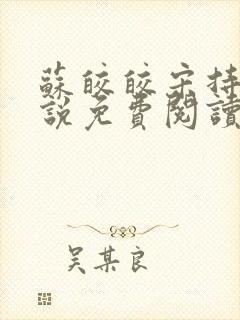 蘇皎皎宋持
說免費閱讀
吴某良